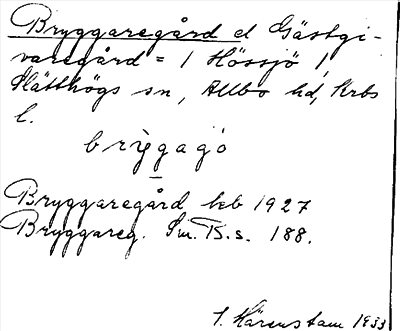 Bryggaregård el Gästgi-
varegård = 1 Hössjö 1,
Slätthögs sn, Allbo hd, Krbs
l.
bryg̀agọ
Bryggaregård leb 1927
Bryggareg. Sm. T.B.s. 188.
I. Härenstam 1933